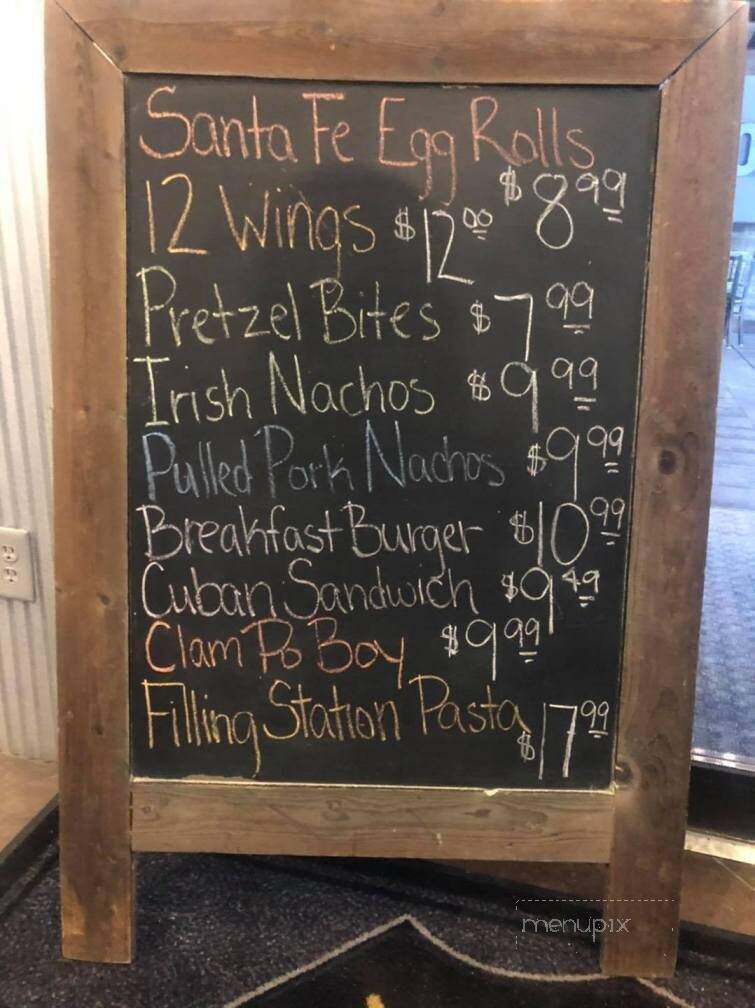 Santa Fe Egg Rolls $8.99
12 Wings $12.00
Pretzel Bites $7.99
Irish Nachos $9.99
Pulled Pork Nachos $9.99
Breakfast Burger $10.99
Cuban Sandwich $9.49
Clam Po Boy $9.99
Filling Station Pasta $17.99
menupix